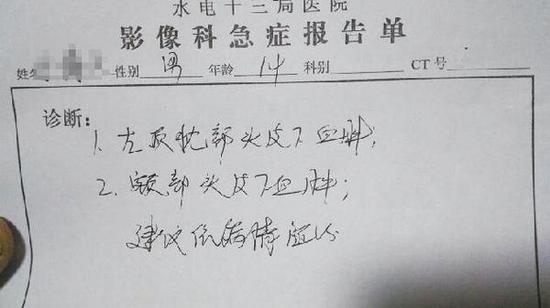 水电十三局医院
影像科急症报告单
姓名 性别 男 年龄 14 科别 CT号
诊断:
1. 左顶枕部头皮下血肿;
2. 额部头皮下血肿;
建议依病情